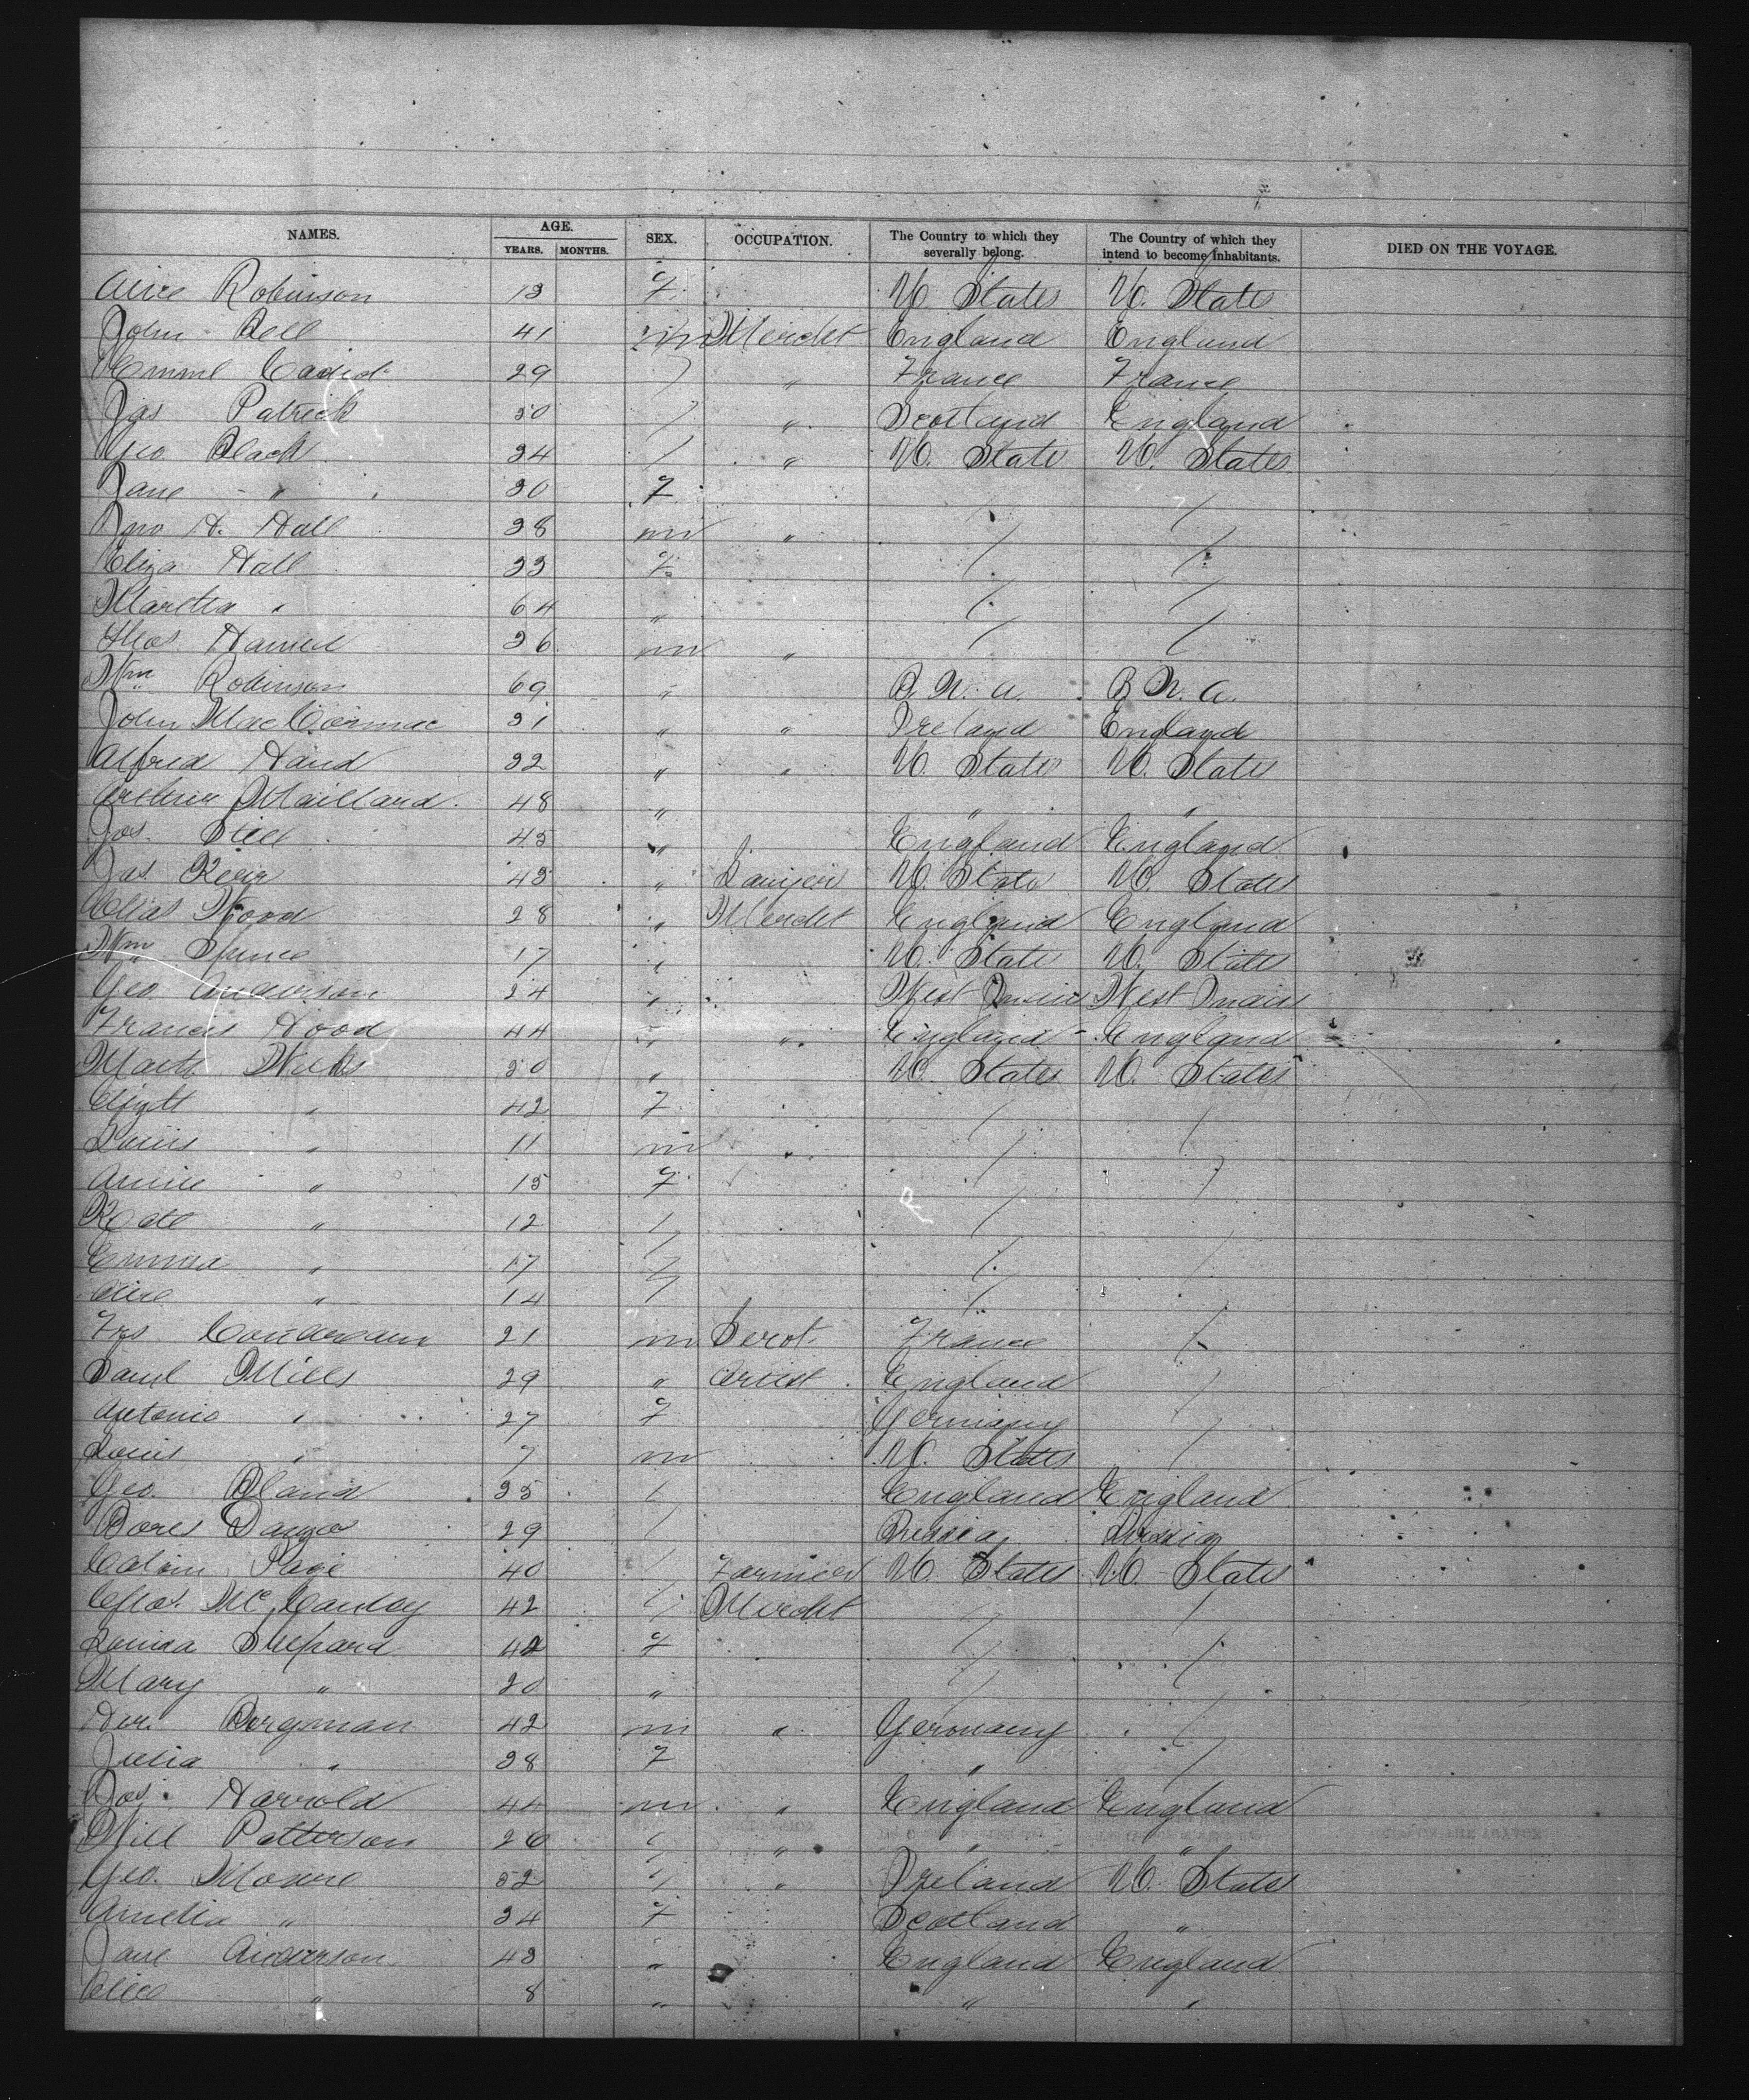 NAMES. AGE. SEX. OCCUPATION. The Country to which they severally belong. The Country of which they intend to become inhabitants. DIED ON THE VOYAGE.
YEARS. MONTHS.
Alice Robinson 13 F U. States U. States
John Bell 41 m Mercht England England
29 " France France
Jas Patrick 50 " Scotland England
Geo Black 34 " U. State U. States
Jane " 30 F
Jno H. Hall 38 m "
Eliza Hall 33 F
Martha " 64 "
Thos 36 m "
Wm Robinson 69 " B. N. A. B. N. A.
John MacCormac 31 " " Ireland England
Alfred Hand 32 " " U. States U. States
Arthur Maillard 48 " " "
Jos. 45 " England England
Jas. 43 " U. State U. States
Wood 28 " Mercht England England
Wm Spence 17 " U. State U. States
Geo Anderson 24 " West Indies West Indies
Francis Hood 44 " " England England
50 " U. States U. States
" 42 F
Louis " 11 m
Annie " 15 F
Kate " 12
Emma " 17
Alice " 14
Frs 21 m France
Saml Mills 29 " Artist England
Antonio " 27 F Germany
Louis " 7 m U. States
Geo. Bland 35 England England
29 Russia Russia
Calvin Page 40 Farmer U. States U. States
Chas. McCauley 42 Mercht
Louisa Shepard 42 F
Mary " 20 "
Bergman 42 m " Germany
Julia " 38 F "
Jos. Harrold 44 m " England England
Will Patterson 26 " " "
Geo. 52 " Ireland U. States
Amelia " 34 F Scotland "
Jane Anderson 43 " England England
Alice " 8 " " "